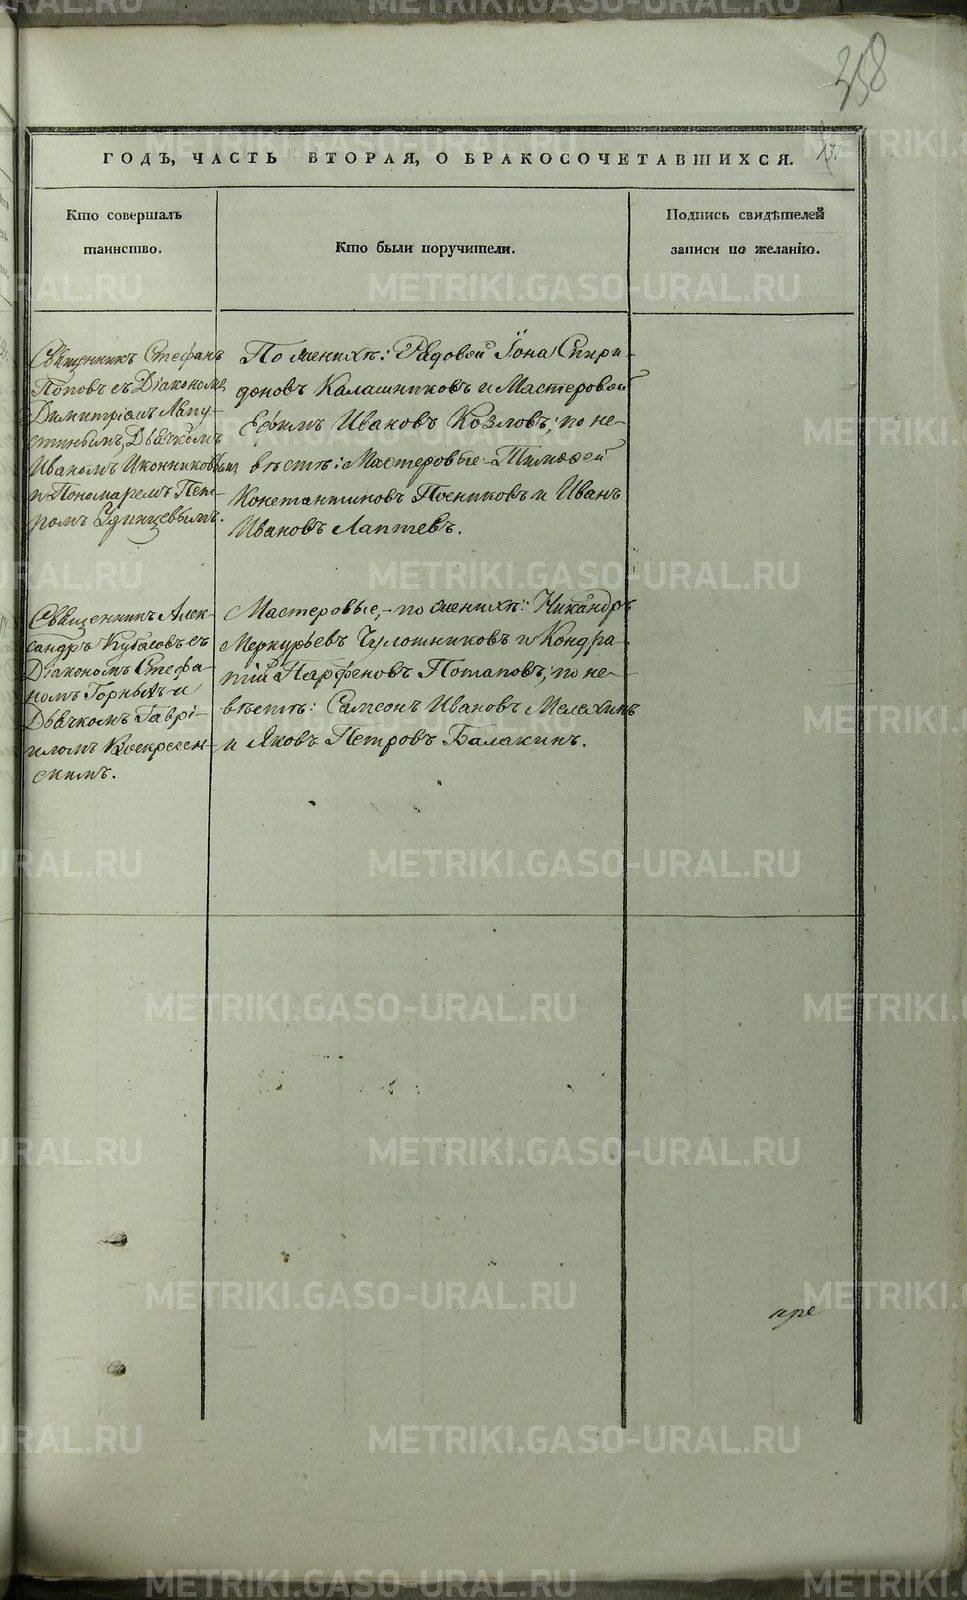 358
ГОДЪ, ЧАСТЬ ВТОРАЯ, О БРАКОСОЧЕТАВШИХСЯ.
Кто совершалъ
таинство.
Кто были поручители.
Подпись свидѣтелей
записи по желанію.
Священникъ Стефанъ
Поповъ съ Діакономъ
Димитріемъ Лапу-
стинымъ, Дьячкомъ
Иваномъ Иконниковымъ
и Пономаремъ Пет-
ромъ Одинцевымъ.
По женихѣ: Рядовой Іона Спири-
доновъ Калашниковъ и Мастеровой
Ефимъ Ивановъ Козловъ; по не-
вѣстѣ: Мастеровые Тимоѳей
Константиновъ Посниковъ и Иванъ
Ивановъ Лаптевъ.
Священникъ Алек-
сандръ Кубасовъ съ
Діакономъ Стефа-
номъ Горныхъ и
Дьячкомъ Гаврі-
иломъ Воскресен-
скимъ.
Мастеровые, по женихѣ: Никандръ
Меркурьевъ Чулошниковъ и Кондра-
тій Парфеновъ Потаповъ; по не-
вѣстѣ: Самсонъ Ивановъ Мелехинъ
и Яковъ Петровъ Балакинъ.
METRIKI.GASO-URAL.RU